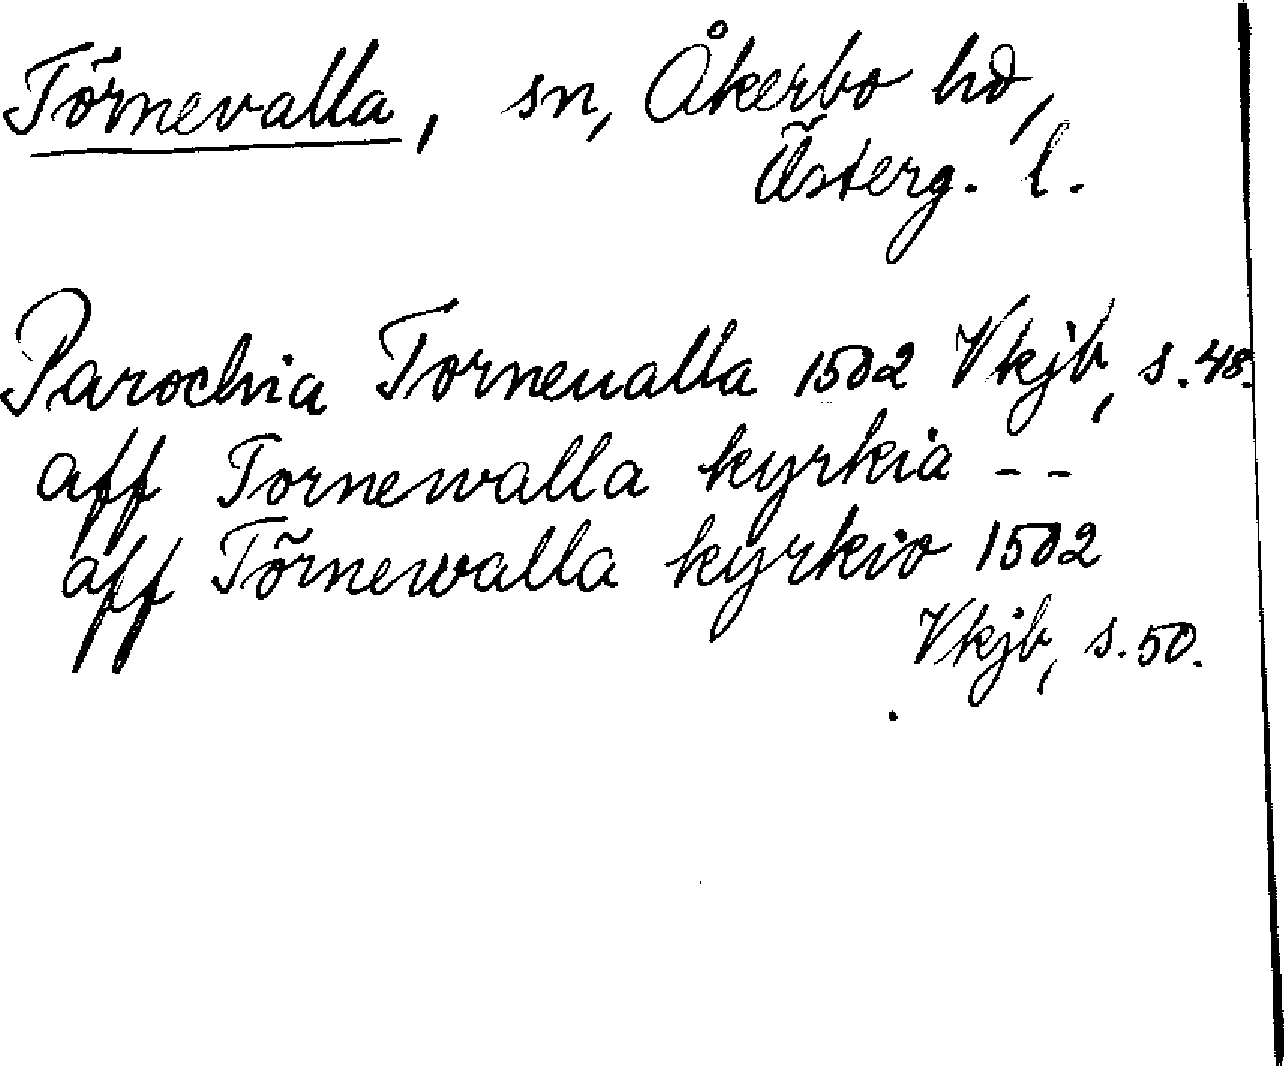 Törnevalla, sn, Åkerbo hd,
Österg. l.
Parochia Torneualla 1502 Vkjb, s. 48.
aff Tornewalla kyrkia - -
aff Törnewalla kyrkio 1502
Vkjb, s. 50.